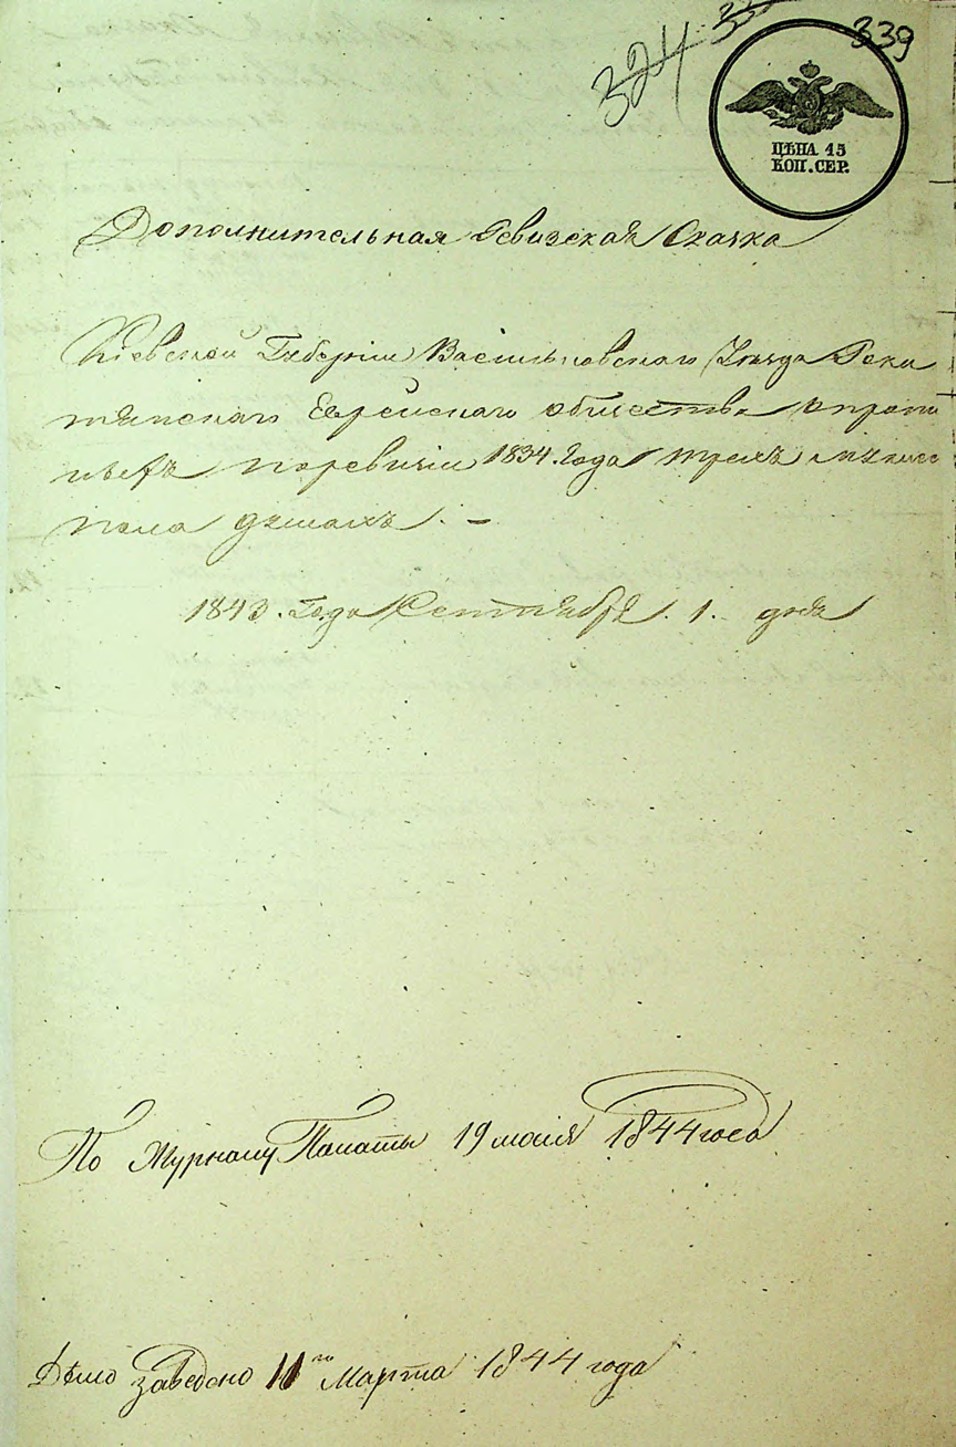 324
339
ЦѢНА 15
КОП. СЕР.
Дополнительная Ревизская Сказка
Кіевской Губерніи Васильковскаго Уезда Роки
тянскаго Еврейскаго общества о пропи
по ревизіи 1834. Года трехъ мужеск
пола душахъ. -
1843. Года Сентября. 1. дня
По Журналу Палаты 19 1844 года
Дѣло заведено 11го Марта 1844 года